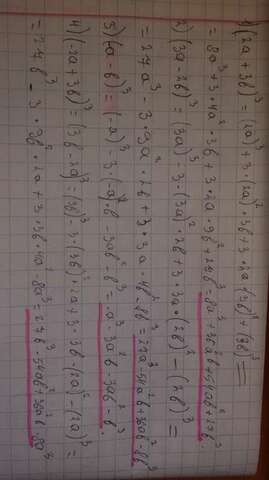 1) (2a + 3b)³ = (2a)³ + 3·(2a)²·3b + 3·2a·(3b)² + (3b)³ =
= 8a³ + 3·4a²·3b + 3·2a·9b² + 27b³ = 8a³ + 36a²b + 54ab² + 27b³.
2) (3a - 2b)³ = (3a)³ - 3·(3a)²·2b + 3·3a·(2b)² - (2b)³ =
= 27a³ - 3·9a²·2b + 3·3a·4b² - 8b³ = 27a³ - 54a²b + 36ab² - 8b³
3) (-a - b)³ = (-a)³ - 3·(-a)²·b - 3ab² - b³ = -a³ - 3a²b - 3ab² - b³.
4) (-2a + 3b)³ = (3b - 2a)³ = (3b)³ - 3·(3b)²·2a + 3·3b·(2a)² - (2a)³ =
= 27b³ - 3·9b²·2a + 3·3b·4a² - 8a³ = 27b³ - 54ab² + 36a²b - 8a³